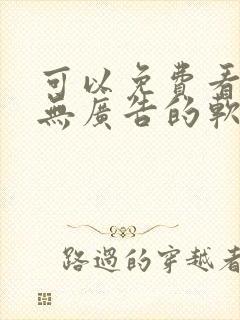 可以免費看
無廣告的軟
路過的穿越者